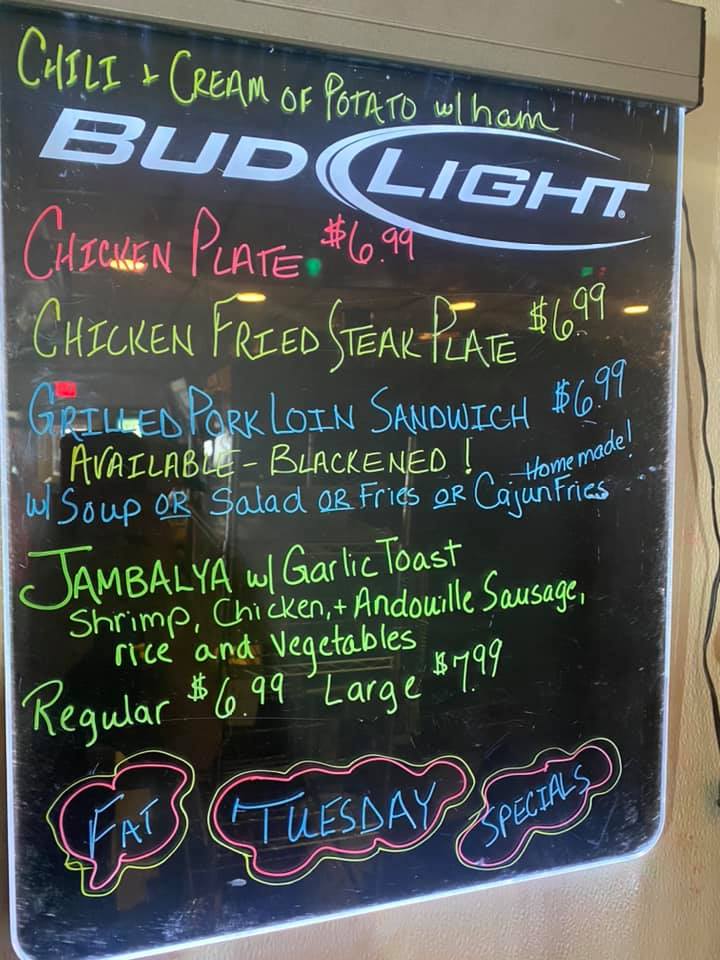 CHILI + CREAM OF POTATO w/ ham
BUD LIGHT®
CHICKEN PLATE $6.99
CHICKEN FRIED STEAK PLATE $6.99
GRILLED PORK LOIN SANDWICH $6.99
AVAILABLE - BLACKENED !
Homemade!
w/ Soup OR Salad OR Fries OR Cajun Fries
JAMBALYA w/ Garlic Toast
Shrimp, Chicken, + Andouille Sausage,
rice and vegetables
Regular $6.99 Large $7.99
FAT TUESDAY SPECIALS